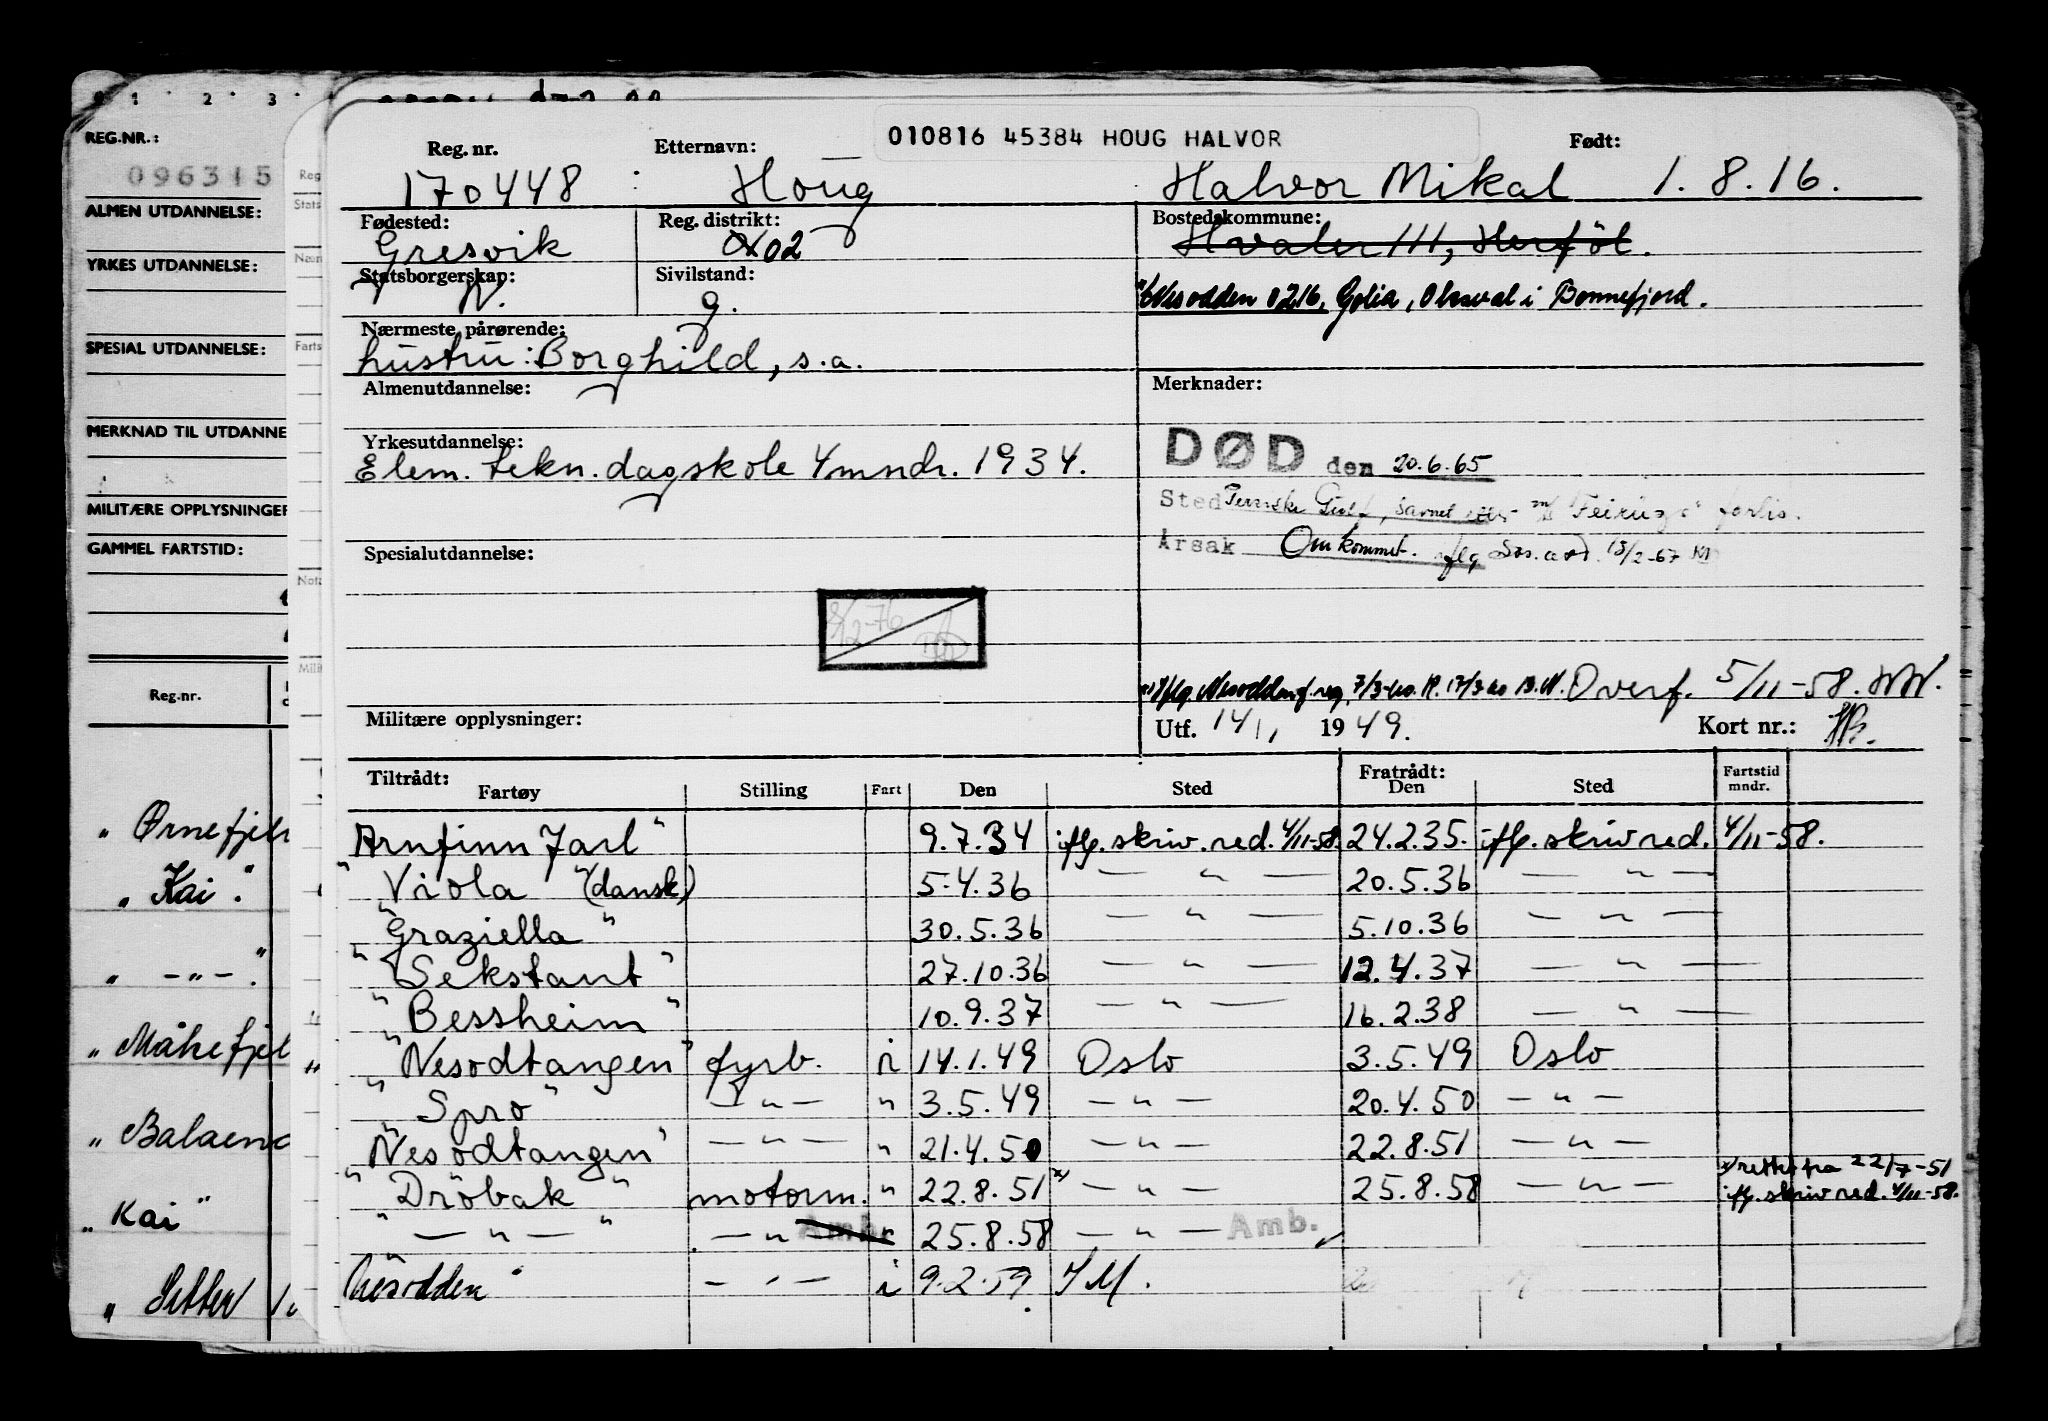 0 1 2 3
REG.NR.:
096315
ALMEN UTDANNELSE:
YRKES UTDANNELSE:
SPESIAL UTDANNELSE:
MERKNAD TIL UTDANNE
MILITÆRE OPPLYSNINGER
GAMMEL FARTSTID:
Reg.nr.
„ Ørnefjell
„ Kai".
„ —„— ".
„ Måkefjel
„ Balaena
„ Kai"
„ Setter
Reg
Stats
Farts
Nota
Milit
010816 45384 HOUG HALVOR
Reg. nr. Etternavn: Født:
170448 Houg Halvor Mikal 1.8.16.
Fødested: Reg. distrikt: Bostedskommune:
Gresvik 02 Hvaler III, Herföl.
Statsborgerskap: Sivilstand:
N. g. Nesodden 0216, Golia, Oksval i Bonnefjord.
Nærmeste pårørende:
hustru: Borghild, s.a.
Almenutdannelse: Merknader:
Yrkesutdannelse:
Elem. tekn. dagskole 4 mndr. 1934.
DØD den 20.6.65
Sted Persiske Gulf, savnet etter m/s "Feiring's" forlis.
Spesialutdannelse:
Årsak Omkommet. iflg Sos. avd. 15/2-67
8/12-76
x) Iflg. Nesodden f.reg. 7/3-60. R. 17/3 60 B.N. Overf. 5/11-58. HW.
Militære opplysninger: Utf. 14/1, 1949. Kort nr.:
Tiltrådt: Fartøy Stilling Fart Den Sted Fratrådt: Den Sted Fartstid mndr.
"Arnfinn Jarl" 9.7.34 iflg. skriv. red. 4/11-58. 24.2.35. iflg. skriv red. 4/11-58.
"Viola" (dansk) 5.4.36 — " — 20.5.36 — " —
"Graziella" 30.5.36 — " — 5.10.36 — " —
"Sekstant" 27.10.36 — " — 12.4.37 — " —
"Bessheim" 10.9.37 — " — 16.2.38 — " —
"Nesodtangen" fyrb. i 14.1.49 Oslo 3.5.49 Oslo
"Spro" — " — " 3.5.49 — " — 20.4.50 — " —
"Nesodtangen" — " — " 21.4.50 — " — 22.8.51 — " —
"Dröbak" motorm. " 22.8.51 x) — " — 25.8.58 — " — x) rettet fra 22/7-51 iflg. skriv red. 4/11-58.
" — " — " — " — Amb. 25.8.58 — " — Amb.
"Nesodden" — " — i 9.2.59 IM.